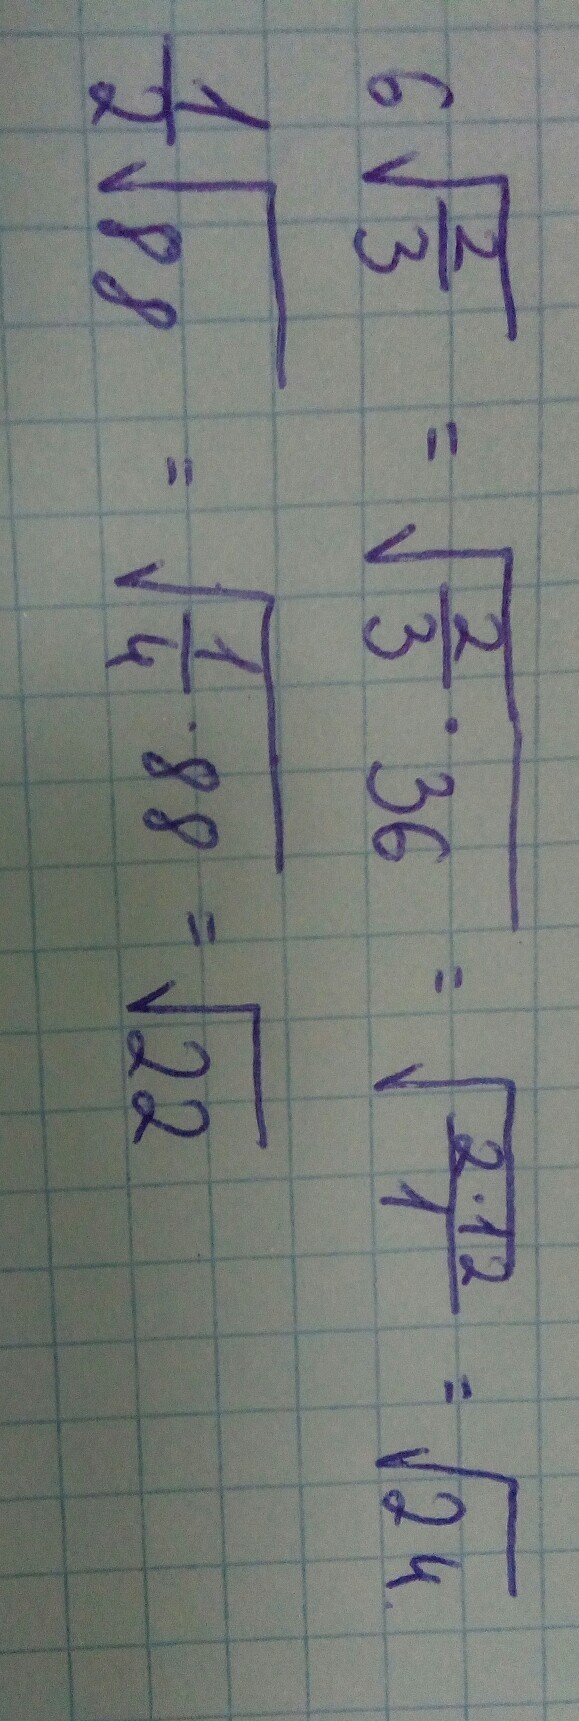 6√(2/3) = √(2/3 · 36) = √((2·12)/1) = √24
1/2√88 = √(1/4 · 88) = √22